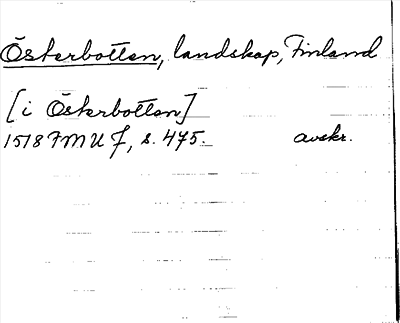 Österbotten, landskap, Finland
[i Österbotten]
1518 FMU 7, s. 475. avskr.